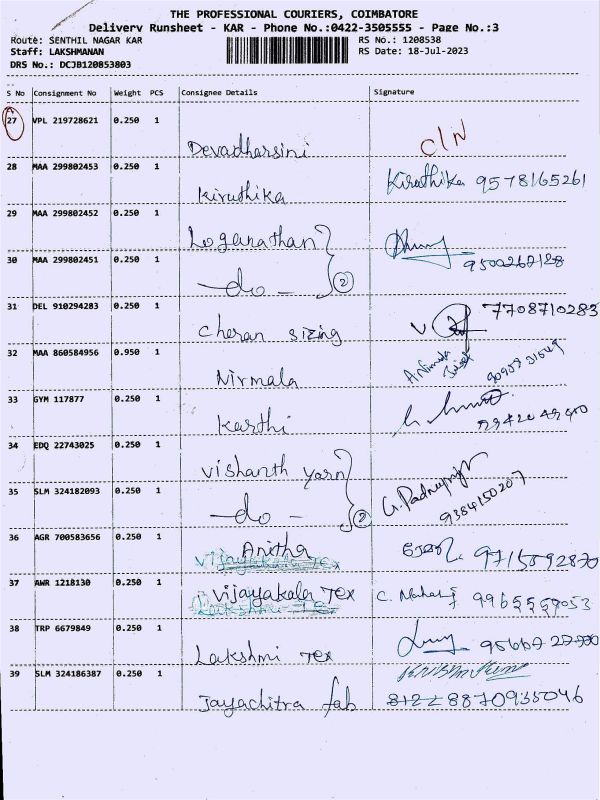 THE PROFESSIONAL COURIERS, COIMBATORE
Delivery Runsheet - KAR - Phone No.:0422-3505555 - Page No.:3
Route: SENTHIL NAGAR KAR RS No.: 1208538
Staff: LAKSHMANAN RS Date: 18-Jul-2023
DRS No.: DCJB120853803
S No Consignment No Weight PCS Consignee Details Signature
27 VPL 219728621 0.250 1
Devadharsini C/N
28 MAA 299802453 0.250 1
Kiruthika Kiruthika 9578165261
29 MAA 299802452 0.250 1
Loganathan
30 MAA 299802451 0.250 1
-do- 2 9500262128
31 DEL 910294283 0.250 1
Cheran sizing 7708710283
32 MAA 860584956 0.950 1
Nirmala
33 GYM 117877 0.250 1
Karthi
34 EDQ 22743025 0.250 1
Vishanth yarn
35 SLM 324182093 0.250 1
-do- 2 9384150207
36 AGR 700583656 0.250 1
Anitha 9715892870
Vijayakala Tex
37 AWR 1218130 0.250 1
Vijayakala Tex
Lakshmi Tex
38 TRP 6679849 0.250 1
Lakshmi Tex
39 SLM 324186387 0.250 1
Jayachitra fab 8122 8870935046